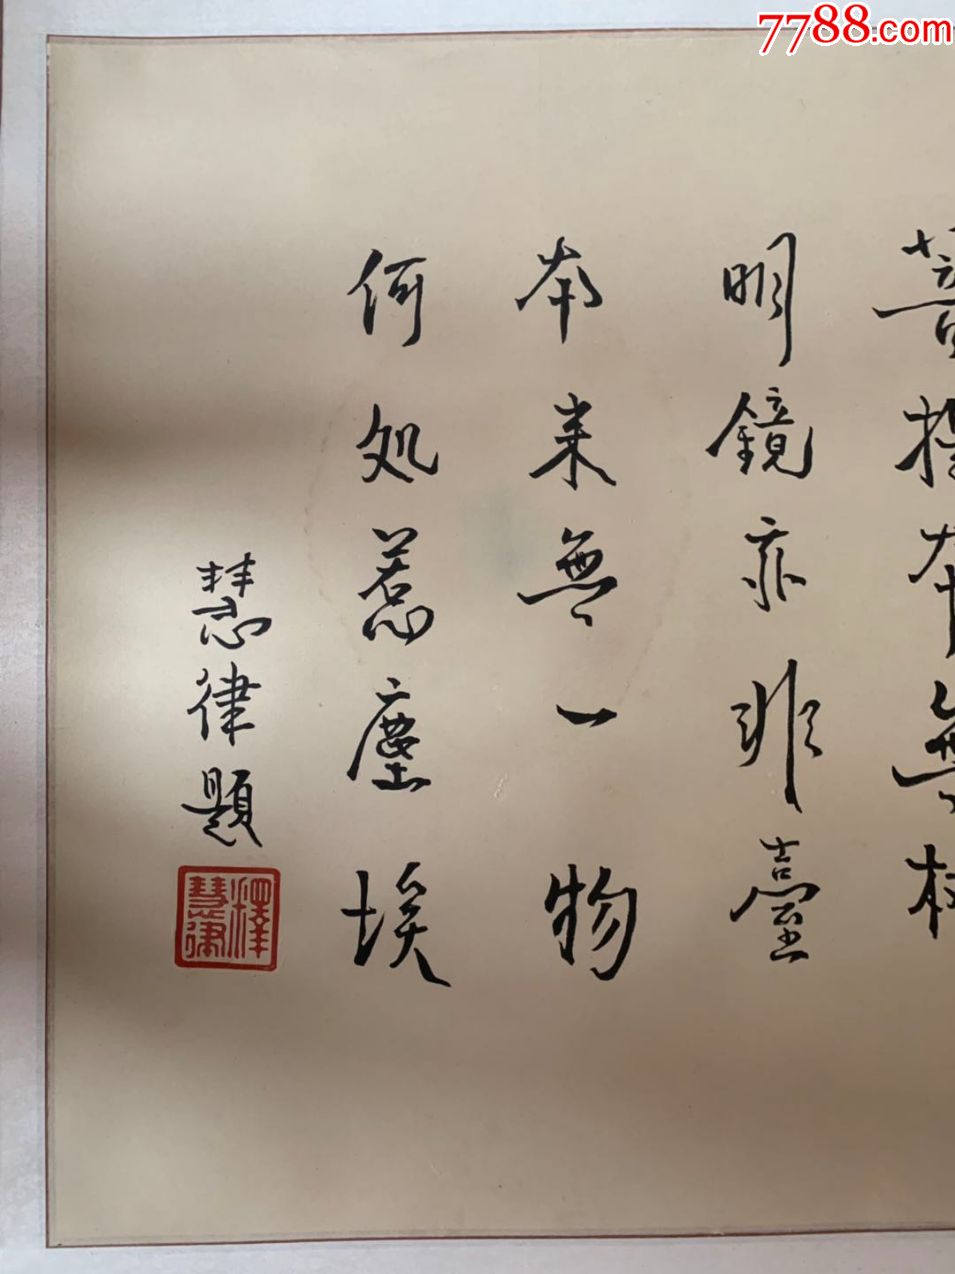 7788.com
菩提本無樹
明鏡亦非臺
本来無一物
何处惹塵埃
慧律題
釋慧律